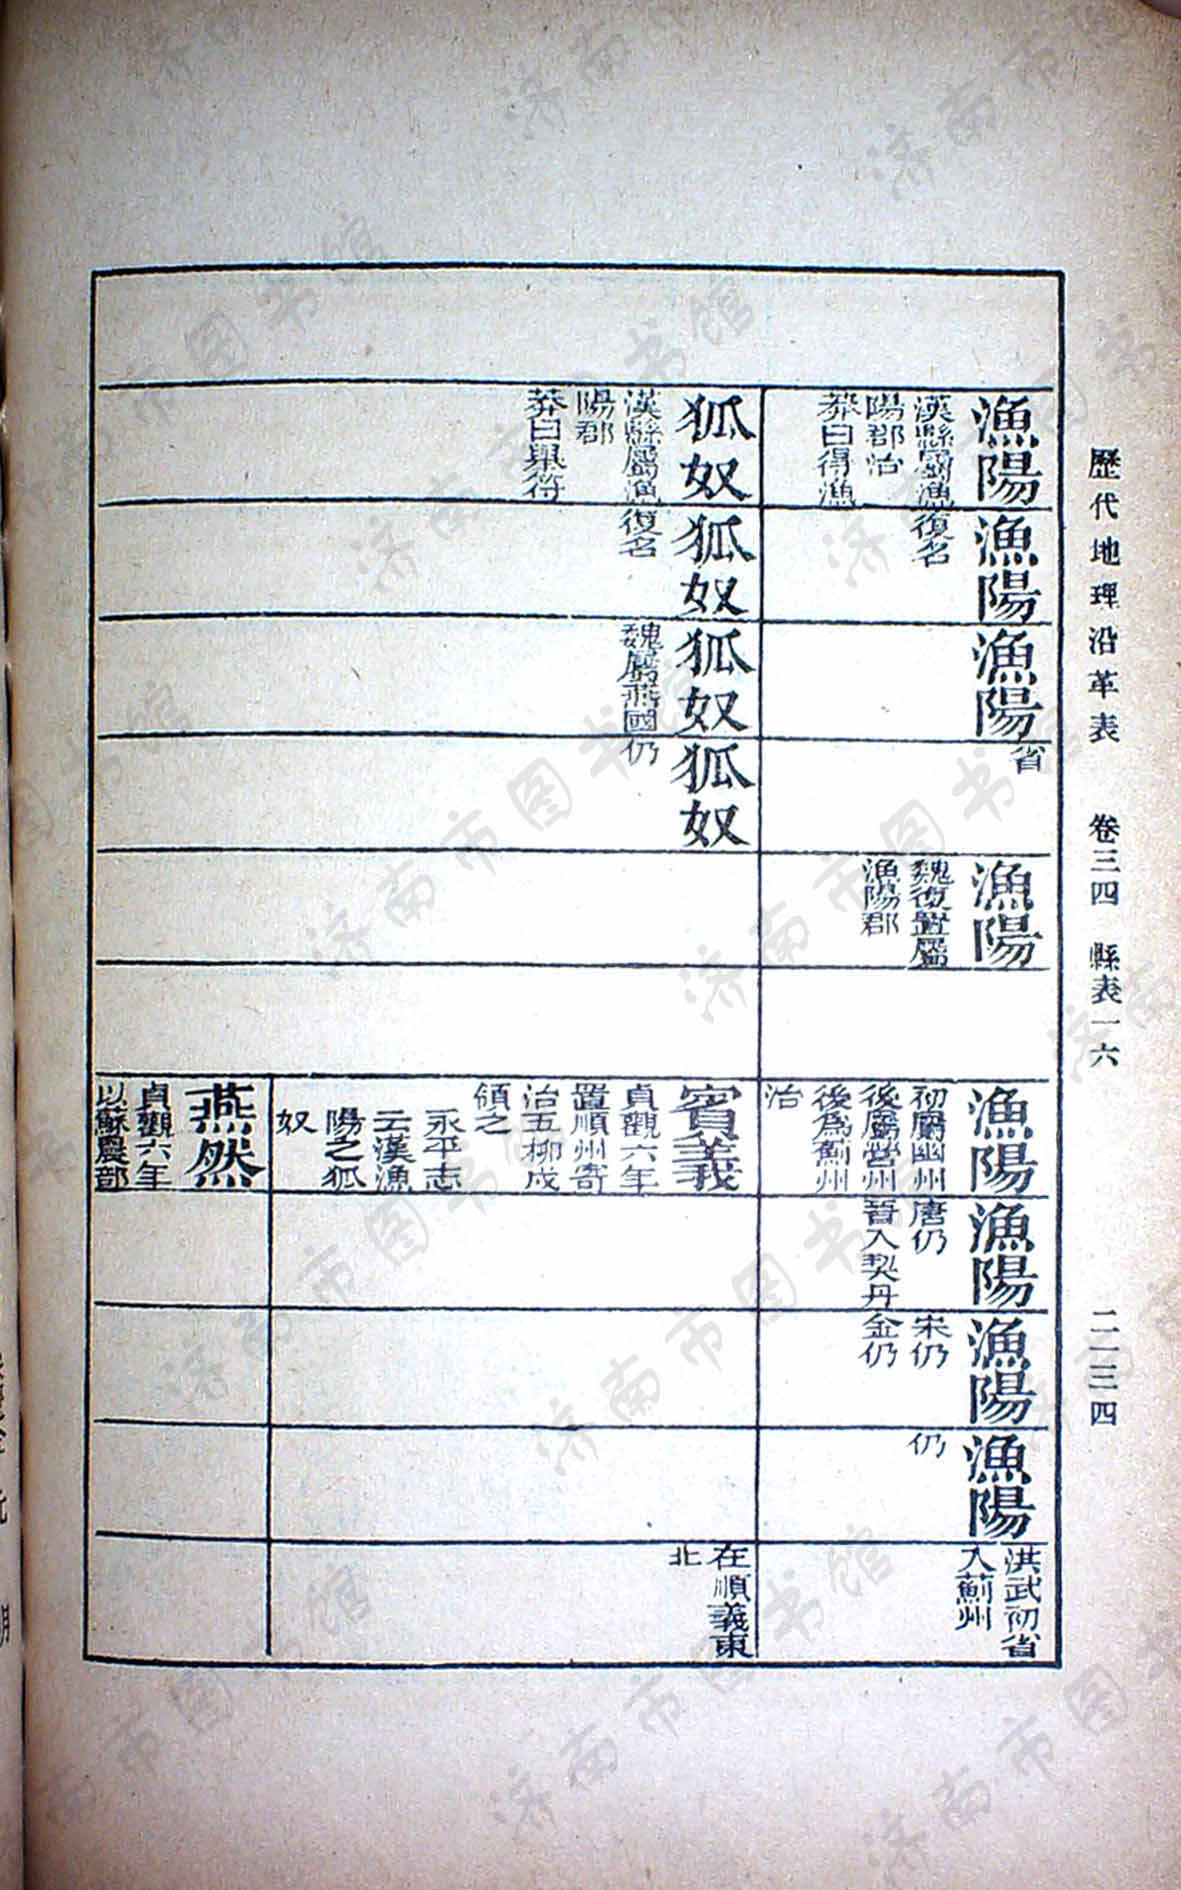 歷代地理沿革表 卷三四 縣表一六 二二三四
漁陽
漢縣屬漁
陽郡治
莽曰得漁
漁陽
復名
漁陽
省
漁陽
魏復置屬
漁陽郡
漁陽
初屬幽州
後屬營州
後爲薊州
治
漁陽
唐仍
晉入契丹
漁陽
宋仍
金仍
漁陽
仍
洪武初省
入薊州
狐奴
漢縣屬漁
陽郡
莽曰舉符
狐奴
復名
狐奴
魏屬燕國
狐奴
仍
賓義
貞觀六年
置順州寄
治五柳戍
領之
永平志
云漢漁
陽之狐
奴
在順義東
北
燕然
貞觀六年
以蘇農部
济南市图书馆